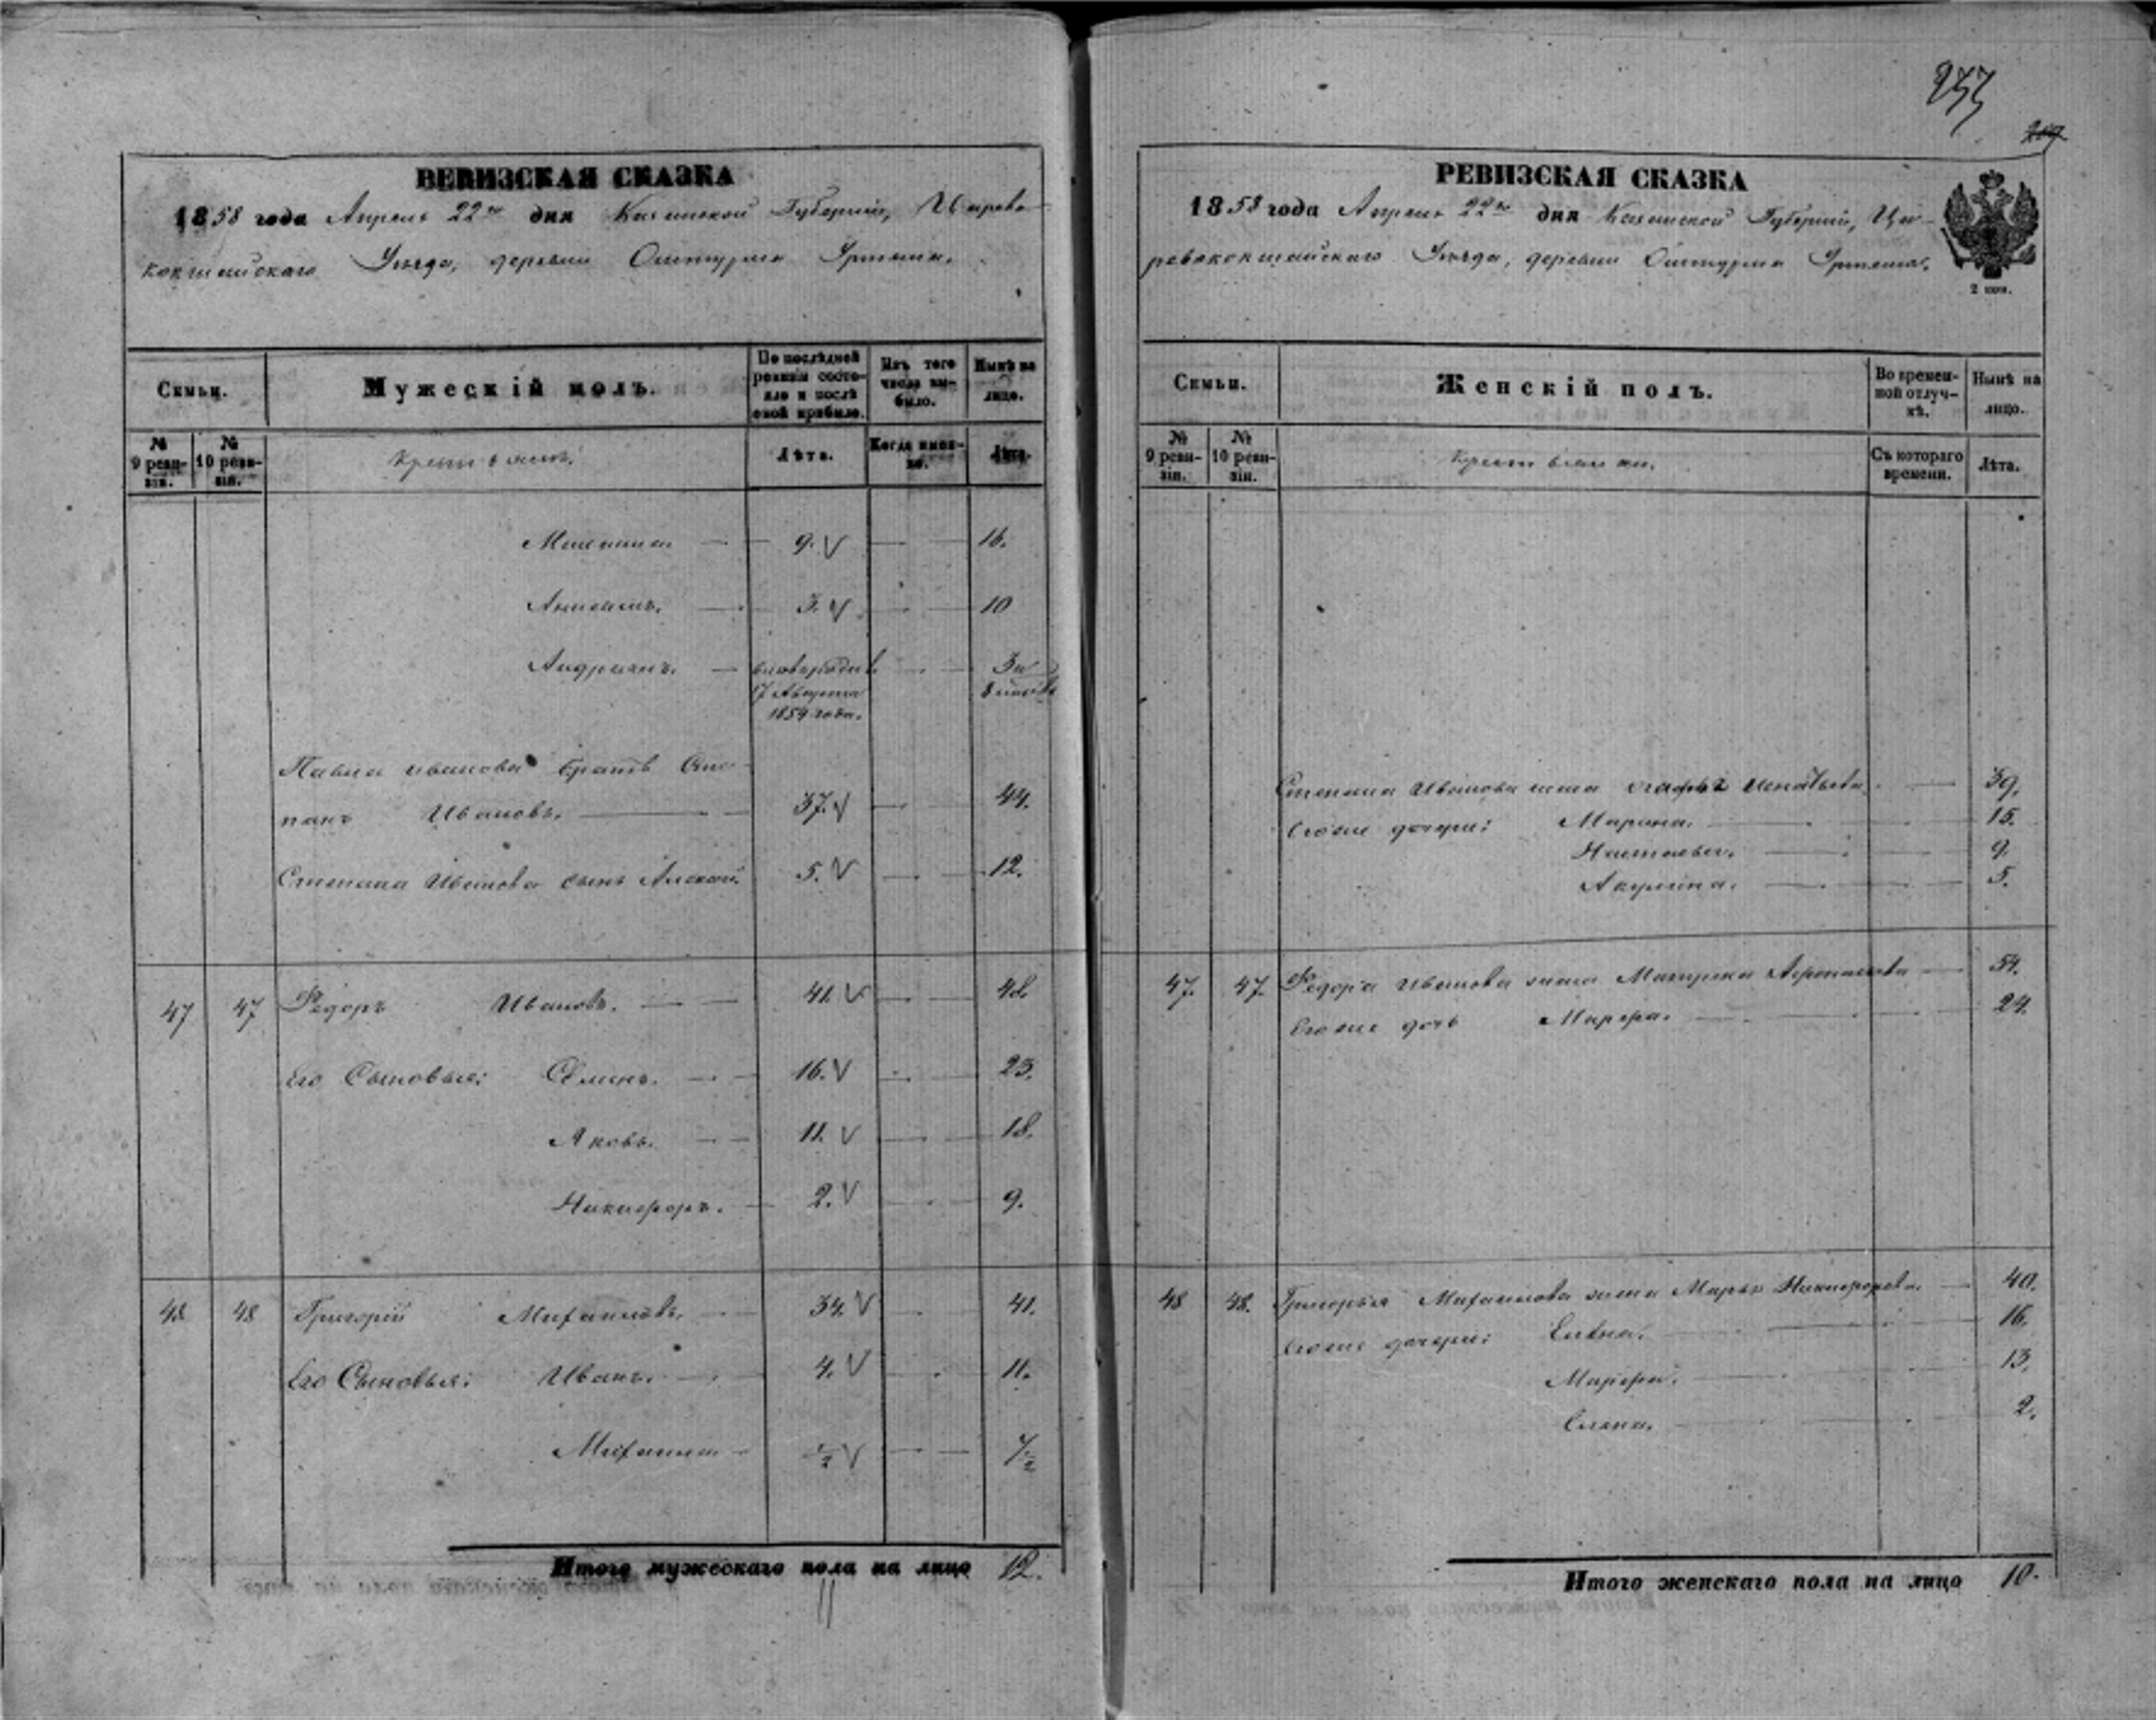 РЕВИЗСКАЯ СКАЗКА
1858 года Апреля 22го дня Казанской Губернии, Царево-
кокшайскаго Уѣзда, деревни
Семьи.
Мужескій полъ.
По послѣдней ревизіи состояло и послѣ оной прибыло.
Изъ того числа выбыло.
Нынѣ на лицо.
№ 9 ревизіи.
№ 10 ревизіи.
Крестьяне.
Лѣта.
Когда именно.
Лѣта.
9. 16.
3. 10
Андріянъ. новорожден 17 Августа 1854 года. 3 и 8 мѣся
Павла Иванова братъ Сте-
панъ Ивановъ. 37. 44.
Степана Иванова сынъ Алексѣй. 5. 12.
47 47 Федоръ Ивановъ. 41. 48.
Его Сыновья: Семенъ. 16. 23.
Яковъ. 11. 18.
Никифоръ. 2. 9.
48 48 Григорій Михайловъ. 34. 41.
Его Сыновья: Иванъ. 4. 11.
Михаилъ 1/2 7 1/2
Итого мужескаго пола на лицо 12.
11
257
РЕВИЗСКАЯ СКАЗКА
1858 года Апреля 22го дня Казанской Губерніи, Ца-
ревококшайскаго Уѣзда, деревни
2 коп.
Семьи.
Женскій полъ.
Во временной отлучкѣ.
Нынѣ на лицо.
№ 9 ревизіи.
№ 10 ревизіи.
Крестьянки.
Съ котораго времени.
Лѣта.
Степана Иванова жена Игнатьева 39.
Его же дочери: Марина. 15.
Настасья. 9
Акулина. 5.
47. 47. Федора Иванова жена Матрена 54.
Его же дочь Марфа. 24.
48 48. Григорья Михайлова жена Марья Никифорова 40.
Его же дочери: Елена. 16.
Марфа. 13.
Елена. 2.
Итого женскаго пола на лицо 10.